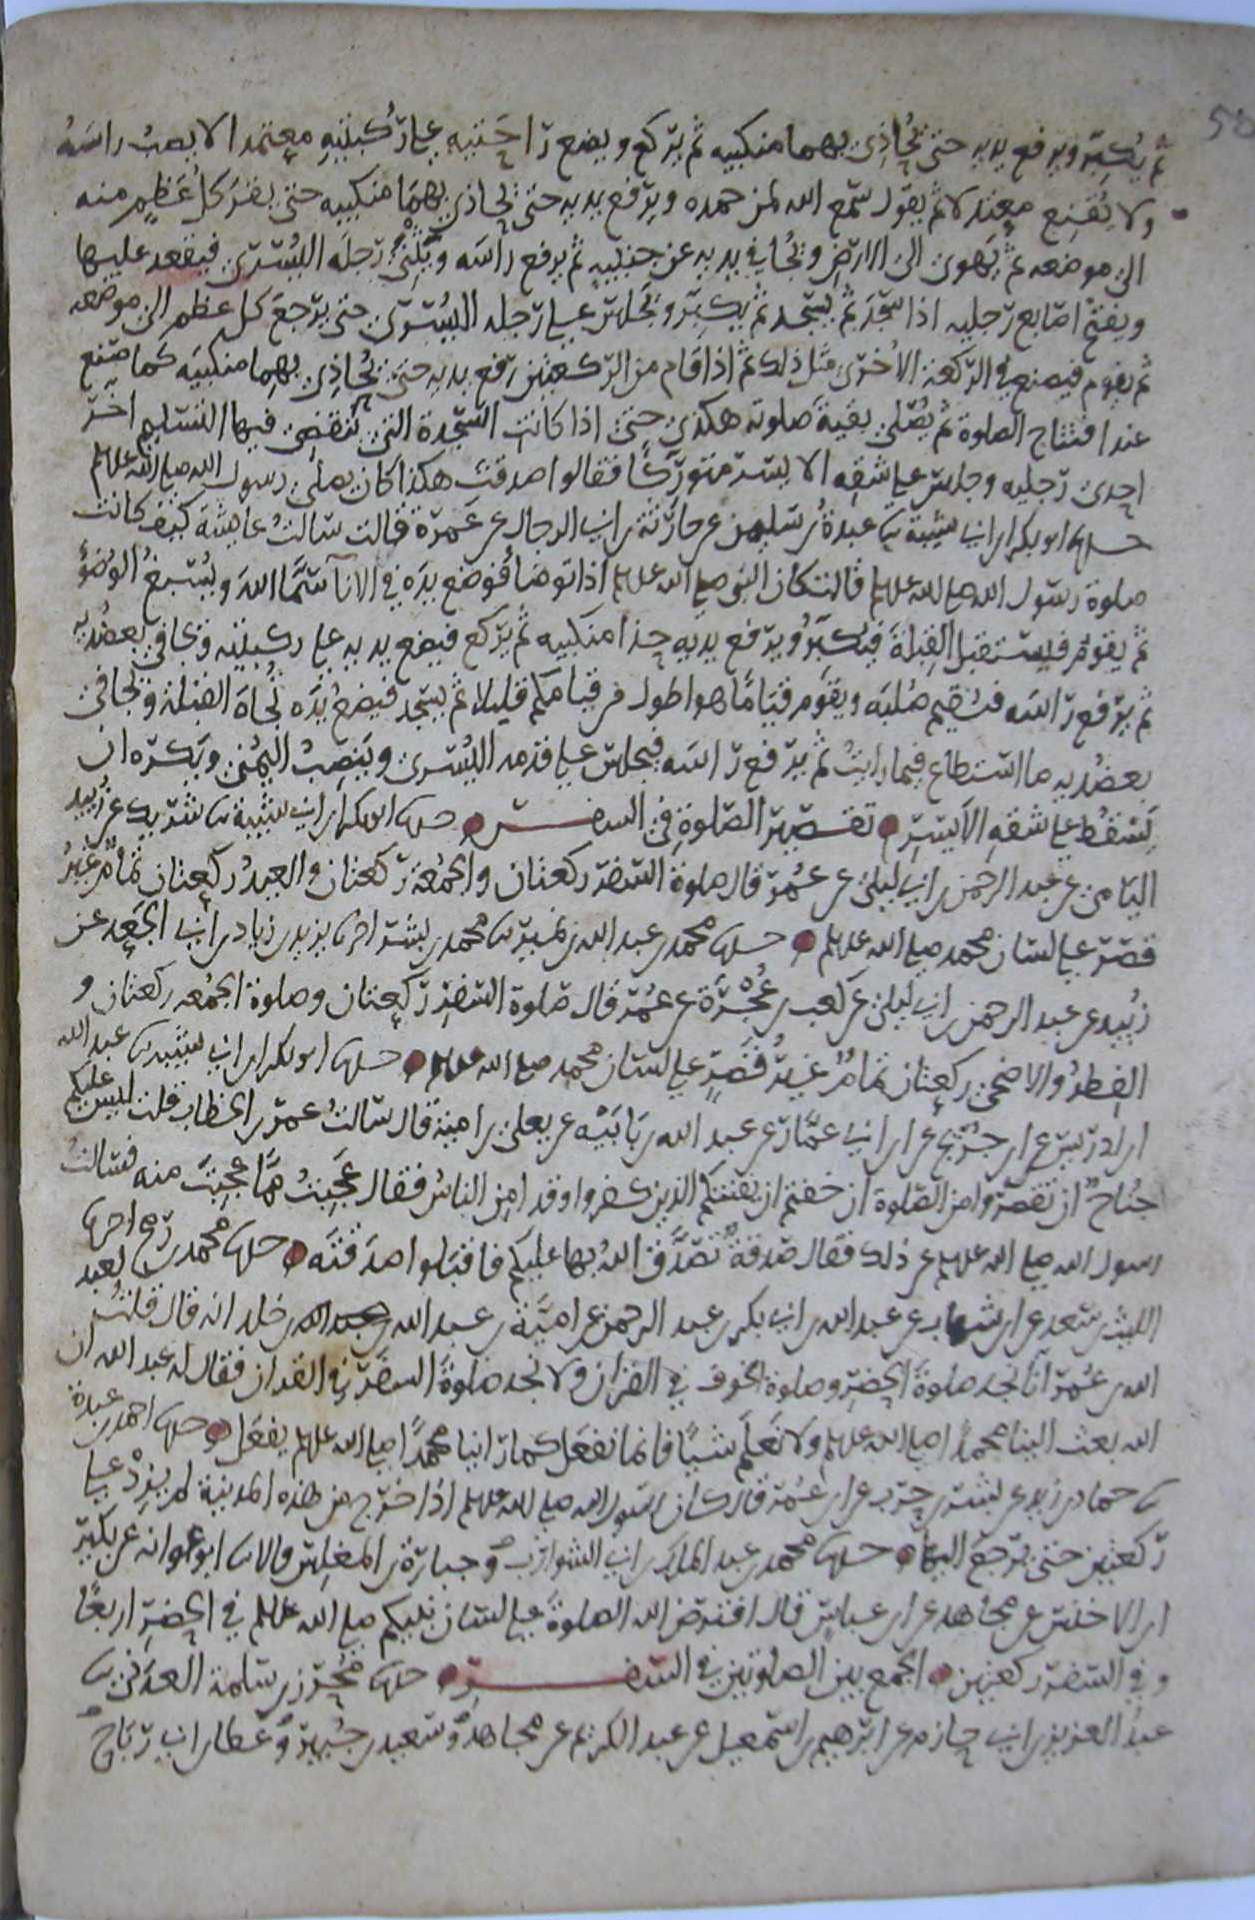 ثم يكبر ويرفع يديه حتى يحاذي بهما منكبيه ثم يركع ويضع راحتيه على ركبتيه معتمدا لا يصب راسه
ولا يقنع معتدلا ثم يقول سمع الله لمن حمده ويرفع يديه حتى يحاذي بهما منكبيه حتى يقر كل عظم منه
الى موضعه ثم يهوى الى الارض ويجافى يديه عن جنبيه ثم يرفع راسه ويثنى رجله اليسرى فيقعد عليها
ويفتح اصابع رجليه اذا سجد ثم يسجد ثم يكبر ويجلس على رجله اليسرى حتى يرجع كل عظم الى موضعه
ثم يقوم فيصنع في الركعة الاخرى مثل ذلك ثم اذا قام من الركعتين رفع يديه حتى يحاذي بهما منكبيه كما صنع
عند افتتاح الصلوة ثم يصلى بقية صلوته هكذى حتى اذا كانت السجدة التى تنقضى فيها التسليم اخر
احدى رجليه وجلس على شقه الايسر متوركا فقالوا صدقت هكذا كان يصلى رسول الله صلى الله عليه وسلم
حدثنا ابو بكر بن ابي شيبة ثنا عبدة بن سليمن عن حارثة بن ابي الرجال عن عمرة قالت سالت عايشة كيف كانت
صلوة رسول الله صلى الله عليه وسلم قالت كان النبي صلى الله عليه وسلم اذا توضأ فوضع يده في الانآ سما الله ويسبغ الوضؤ
ثم يقوم فيستقبل القبلة فيكبر ويرفع يديه حذا منكبيه ثم يركع فيضع يديه على ركبتيه ويجافي بعضديه
ثم يرفع راسه فيقيم صلبه ويقوم قياما هو اطول من قيامكم قليلا ثم يسجد فيضع يده تجاه القبلة ويجافى
بعضديه ما استطاع فيما رايت ثم يرفع راسه فيجلس على قدمه اليسرى وينصب اليمنى ويكره ان
يسقط على شقه الايسر تقصير الصلوة في السفر حدثنا ابو بكر بن ابي شيبة ثنا شريك عن زبيد
اليامى عن عبد الرحمن بن ابي ليلى عن عمر قال صلوة السفر ركعتان والجمعة ركعتان والعيد ركعتان تمام غير
قصر على لسان محمد صلى الله عليه وسلم حدثنا محمد بن عبد الله بن نمير ثنا محمد بن بشر اخبرنا يزيد بن زياد بن ابي الجعد عن
زبيد عن عبد الرحمن بن ابي ليلى عن كعب بن عجرة عن عمر قال صلوة السفر ركعتان وصلوة الجمعه ركعتان و
الفطر والاضحى ركعتان تمام غير قصر على لسان محمد صلى الله عليه وسلم حدثنا ابو بكر بن ابي شيبه ثنا عبد الله
ابن ادريس عن ابن جريج عن ابن ابي عمار عن عبد الله بن بابيه عن يعلى بن امية قال سالت عمر بن الخطاب قلت ليس عليكم
جناح ان تقصروا من الصلوة ان خفتم ان يفتنكم الذين كفروا وقد امن الناس فقال عجبت مما عجبت منه فسالت
رسول الله صلى الله عليه وسلم عن ذلك فقال صدقة تصدق الله بها عليكم فاقبلوا صدقته حدثنا محمد بن رمح اخبرنا
الليث بن سعد عن ابن شهاب عن عبد الله بن ابي بكر بن عبد الرحمن عن امية بن عبد الله بن خلد انه قال قلت لعبد
الله بن عمر انا نجد صلوة الحضر وصلوة الخوف في القران ولا نجد صلوة السفر في القران فقال له عبد الله ان
الله بعث الينا محمدا صلى الله عليه وسلم ولا نعلم شيا فانما نفعل كما راينا محمدا صلى الله عليه وسلم يفعل حدثنا احمد بن عبدة
ثنا حماد بن زيد عن بشر بن حرب عن ابن عمر قال كان رسول الله صلى الله عليه وسلم اذا خرج من هذه المدينة لم يزد على
ركعتين حتى يرجع اليها حدثنا محمد بن عبد الملك بن ابي الشوارب وجبارة بن المغلس قالا ثنا ابو عوانه عن بكير
ابن الاخنس عن مجاهد عن ابن عباس قال افترض الله الصلوة على لسان نبيكم صلى الله عليه وسلم في الحضر اربعا
وفي السفر ركعتين الجمع بين الصلوتين في السفر حدثنا محرز بن سلمة العدنى ثنا
عبد العزيز بن ابي حازم عن ابرهيم بن اسمعيل عن عبد الكريم عن مجاهد وسعيد بن جبير وعطا بن ابي رباح